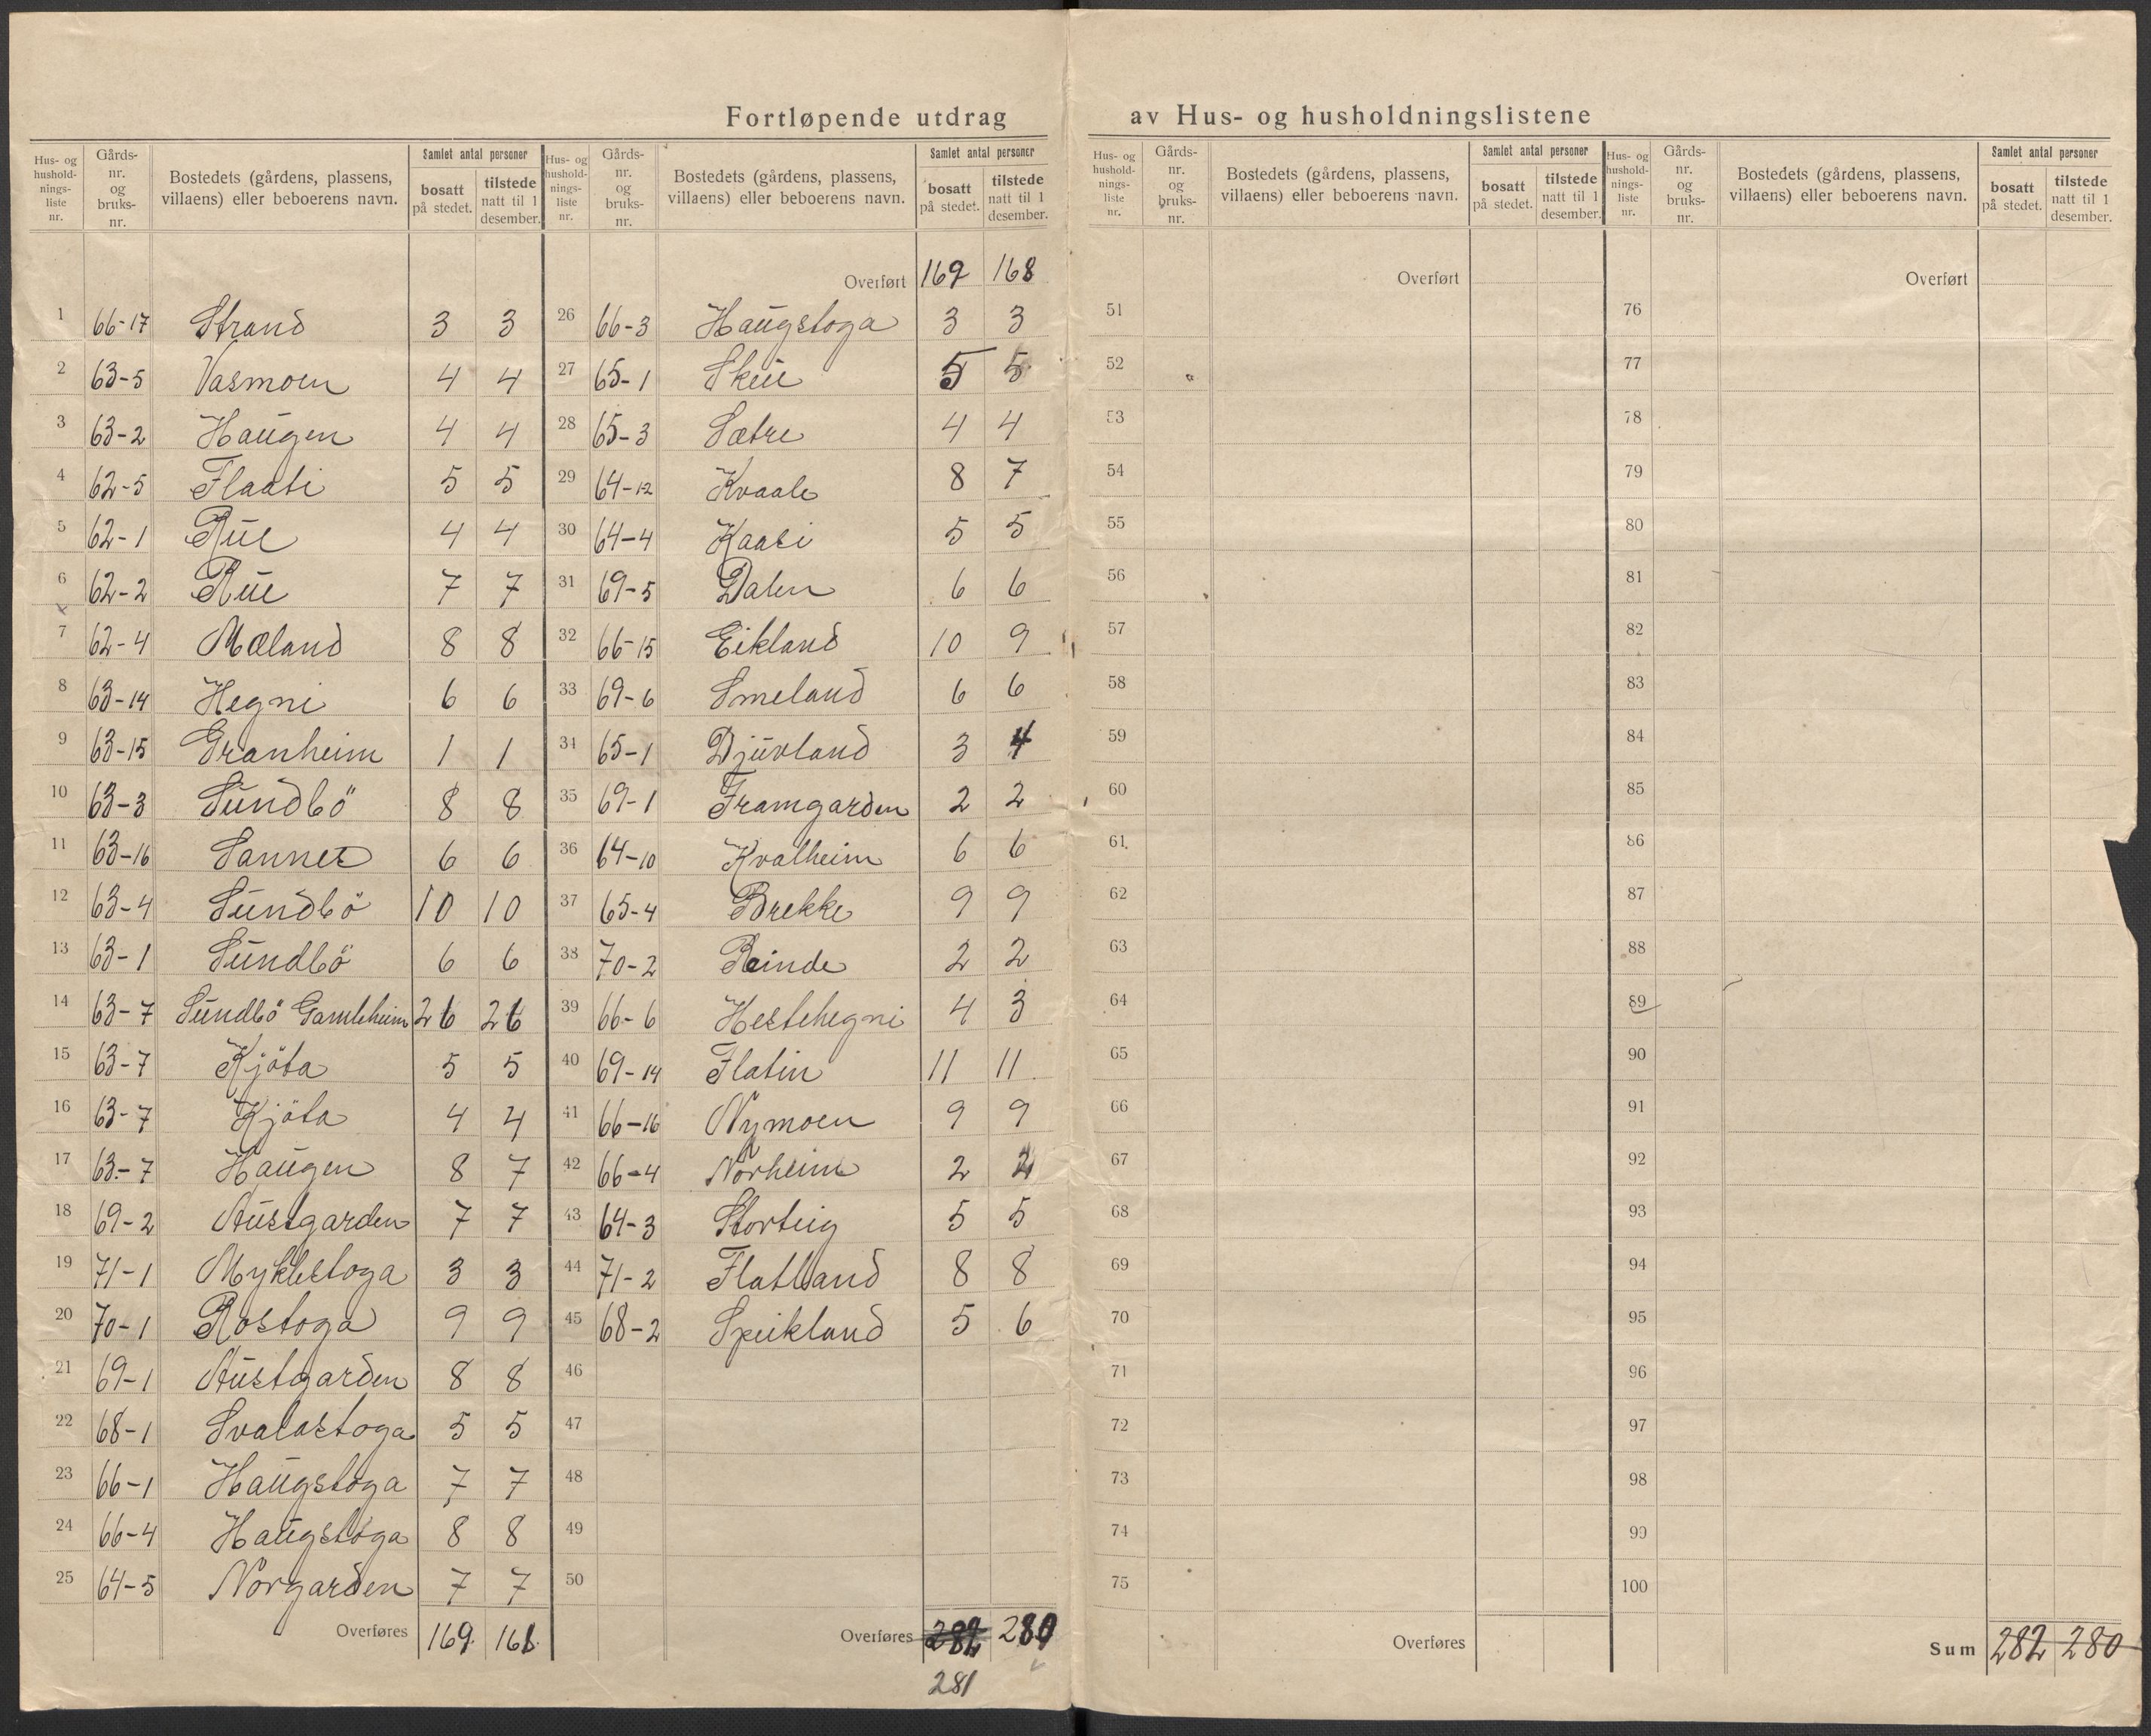 Fortløpende utdrag av Hus- og husholdningslistene
Hus- og hushold-nings-liste nr. | Gårds-nr. og bruks-nr. | Bostedets (gårdens, plassens, villaens) eller beboerens navn. | Samlet antal personer | bosatt på stedet. | tilstede natt til 1 desember.
1 66-17 Strand 3 3
2 63-5 Vasmoen 4 4
3 63-2 Haugen 4 4
4 62-5 Flaati 5 5
5 62-1 Rue 4 4
6 62-2 Rue 7 7
7 62-4 Mæland 8 8
8 63-14 Hegni 6 6
9 63-15 Granheim 1 1
10 63-3 Sundbö 8 8
11 63-16 Sannes 6 6
12 63-4 Sundbö 10 10
13 63-1 Sundbö 6 6
14 63-7 Sundbö Gamleheim 26 26
15 63-7 Kjöta 5 5
16 63-7 Kjöta 4 4
17 63-7 Haugen 8 7
18 69-2 Austgarden 7 7
19 71-1 Myklestoga 3 3
20 70-1 Rostoga 9 9
21 69-1 Austgarden 8 8
22 68-1 Svalastoga 5 5
23 66-1 Haugstoga 7 7
24 66-4 Haugstoga 8 8
25 64-5 Norgarden 7 7
Overføres 169 168
Hus- og hushold-nings-liste nr. | Gårds-nr. og bruks-nr. | Bostedets (gårdens, plassens, villaens) eller beboerens navn. | Samlet antal personer | bosatt på stedet. | tilstede natt til 1 desember.
Overført 169 168
26 66-3 Haugstoga 3 3
27 65-1 Skue 5 5
28 65-3 Sætre 4 4
29 64-12 Kvaale 8 7
30 64-4 Kaasi 5 5
31 69-5 Dalen 6 6
32 66-15 Eikland 10 9
33 69-6 Smeland 6 6
34 65-1 Djuvland 3 4
35 69-1 Framgarden 2 2
36 64-10 Kvalheim 6 6
37 65-4 Brekke 9 9
38 70-2 Reinde 2 2
39 66-6 Hestehegni 4 3
40 69-14 Flatin 11 11
41 66-16 Nymoen 9 9
42 66-4 Norheim 2 2
43 64-3 Storteig 5 5
44 71-2 Flatland 8 8
45 68-2 Speikland 5 6
46
47
48
49
50
Overføres 282 280
281
Hus- og hushold-nings-liste nr. | Gårds-nr. og bruks-nr. | Bostedets (gårdens, plassens, villaens) eller beboerens navn. | Samlet antal personer | bosatt på stedet. | tilstede natt til 1 desember.
Overført
51
52
53
54
55
56
57
58
59
60
61
62
63
64
65
66
67
68
69
70
71
72
73
74
75
Overføres
Hus- og hushold-nings-liste nr. | Gårds-nr. og bruks-nr. | Bostedets (gårdens, plassens, villaens) eller beboerens navn. | Samlet antal personer | bosatt på stedet. | tilstede natt til 1 desember.
Overført
76
77
78
79
80
81
82
83
84
85
86
87
88
89
90
91
92
93
94
95
96
97
98
99
100
Sum 282 280